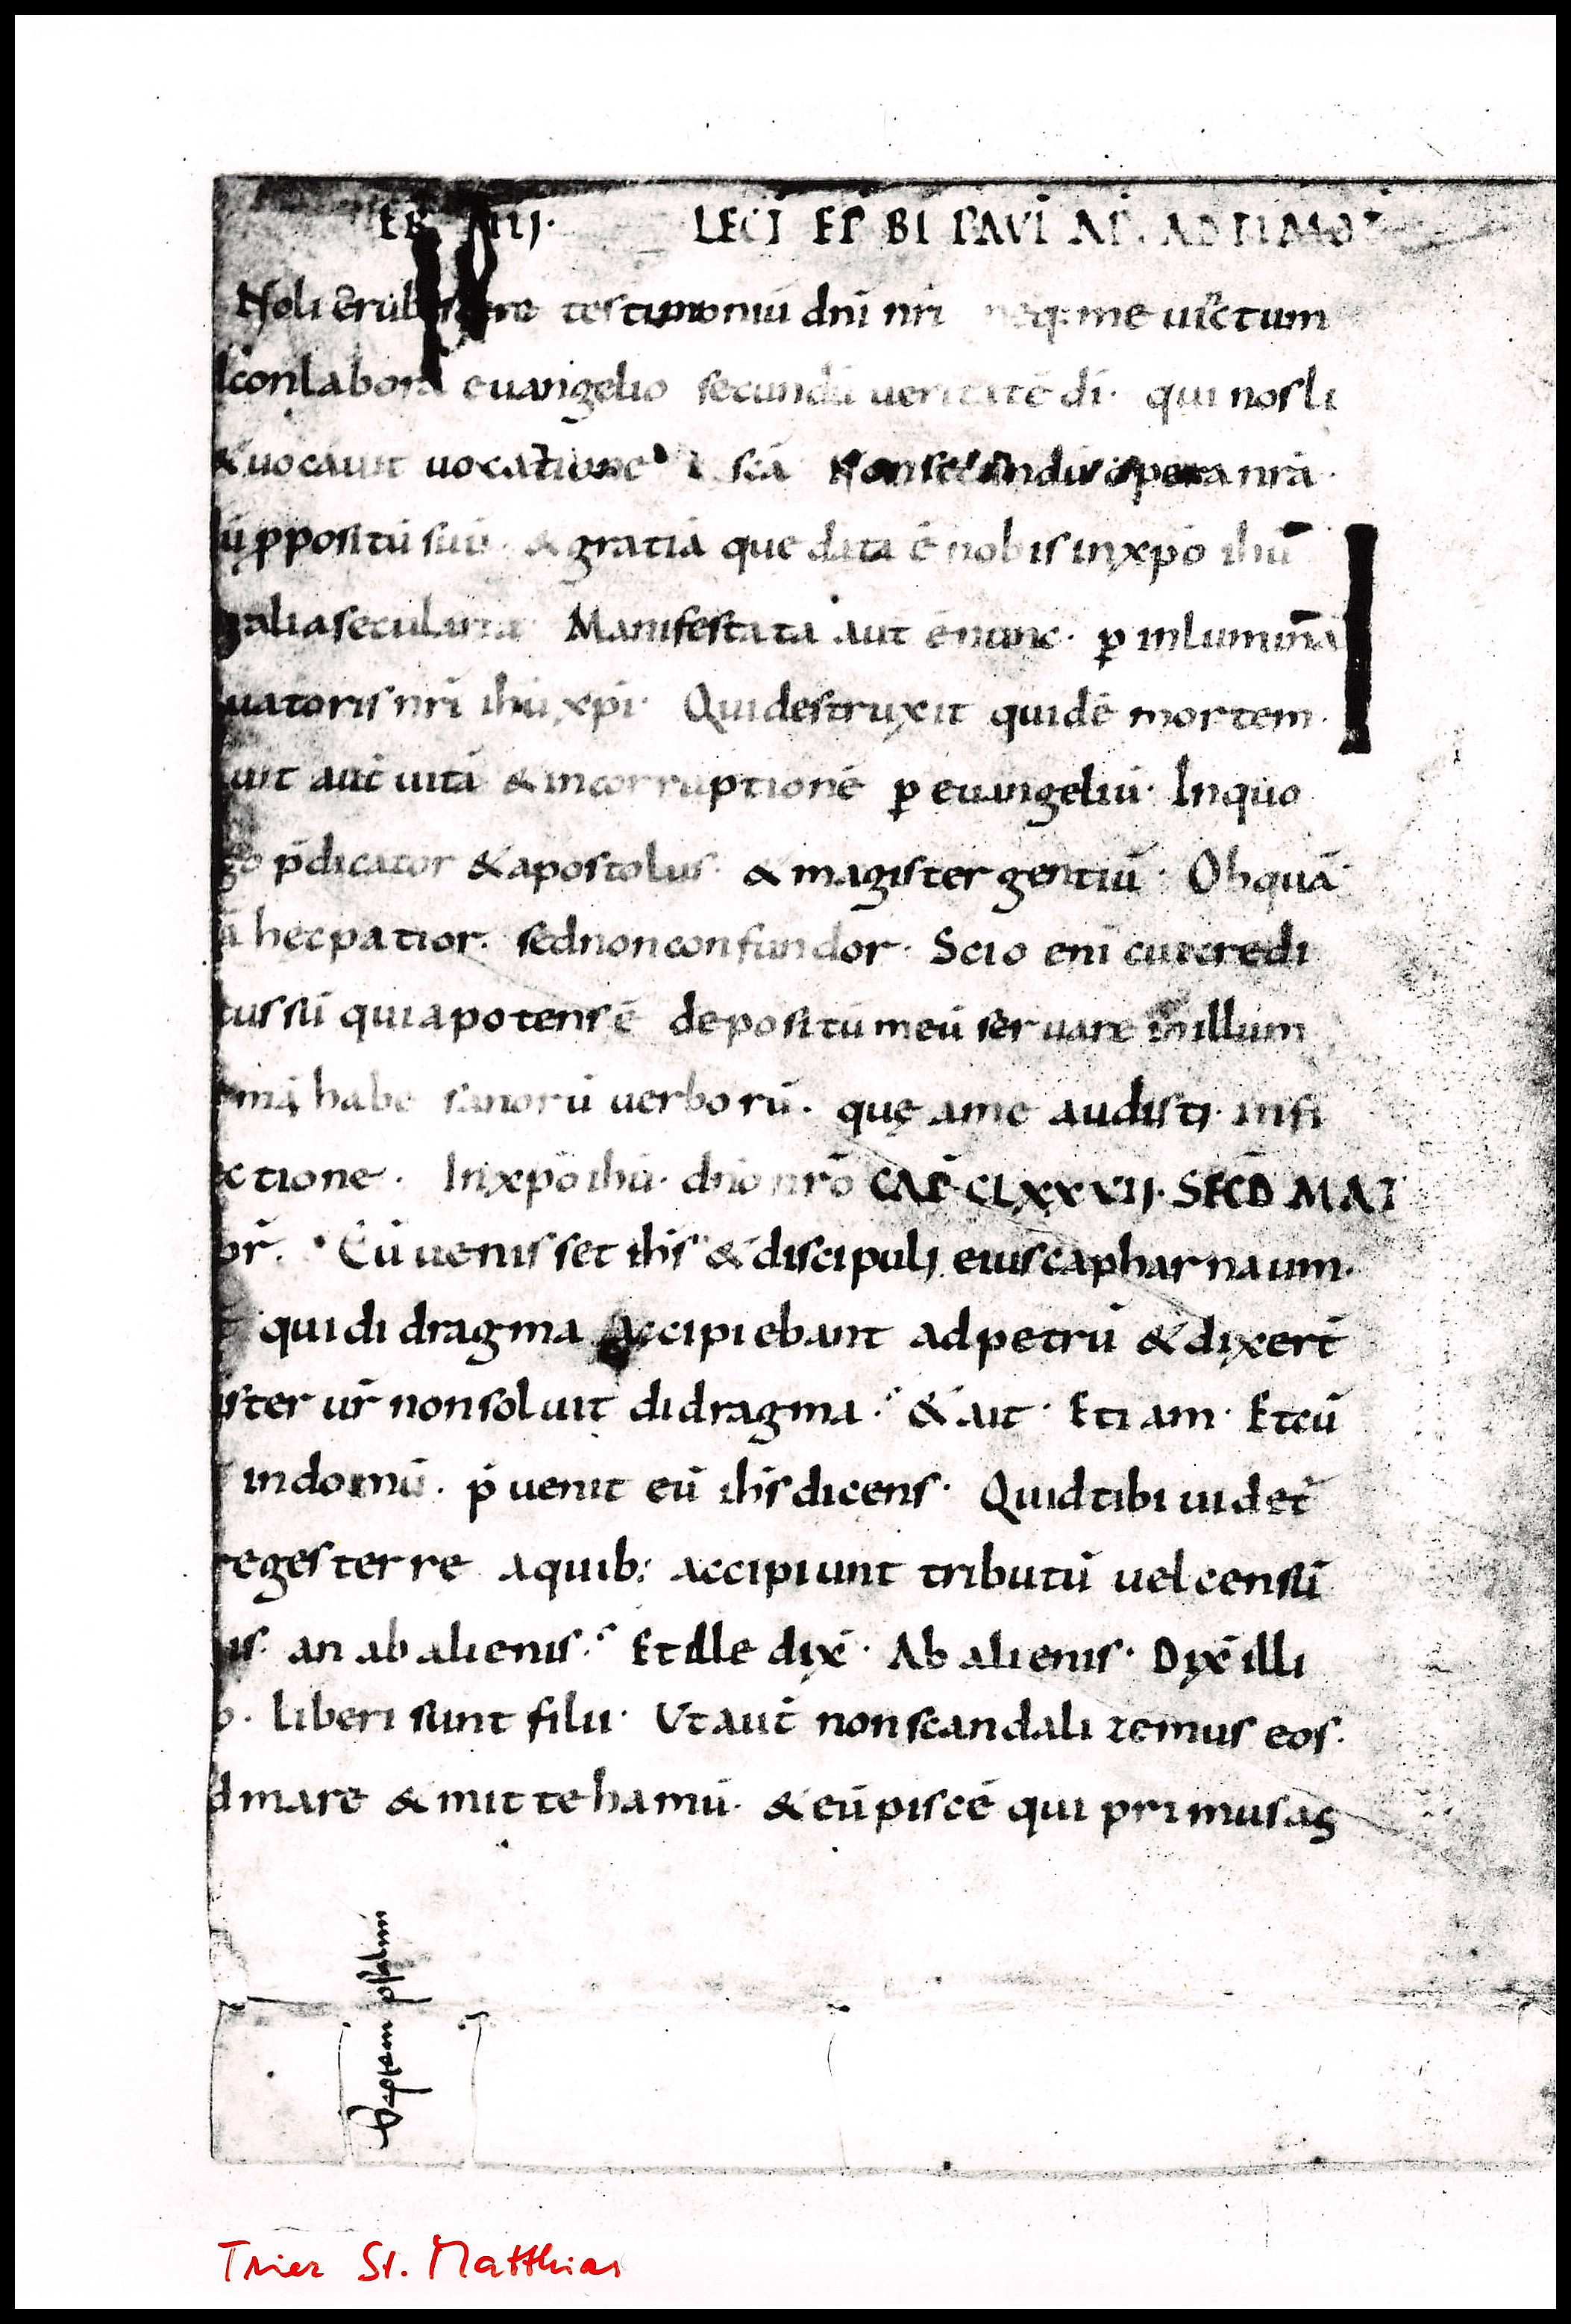 LECT EP BI PAVI AP. AD TIMOT
Noli erubescere testimoniū dn̄i nr̄i neq; me uinctum
conlabora euangelio secundū ueritatē dī· qui nos li
& uocauit uocatione scā Non secundū opera nr̄a·
ū ꝓpositū suū· & gratiā que data ē nobis in xp̄o ihū
alia secularia· Manifestata aut̄ ē nunc· ꝑ inlumina
uatoris nr̄i ihū xp̄i· Qui destruxit quidē mortem·
uit aut̄ uitā & incorruptionē ꝑ euangeliū· In quo
go p̄dicator & apostolus· & magister gentiū· Ob quā
ā hec patior· sed non confundor· Scio enī cui credi
tus sū quia potens ē depositū meū seruare in illum
mā habe sanorū uerborū· quę a me audisti· in fi
ctione· In xp̄o ihū· dn̄o nr̄o CAP̄· CLXXVII· SECD̄ MAT
or̄· Cū uenisset ihs̄ & discipuli eius capharnaum·
qui didragma accipiebant ad petrū & dixer̄t
ister ur̄ non soluit didragma· & ait· Etiam· Et cū
in domū· p̄uenit eū ihs̄ dicens· Quid tibi uidet̄
reges terre a quib; accipiunt tributū uel censū
is· an ab alienis· Et ille dix̄· Ab alienis· Dix̄ illi
liberi sunt filii· Ut aut̄ non scandalizemus eos·
d mare & mitte hamū· & eū piscē qui primus as
Septem psalmi
Trier St. Matthias